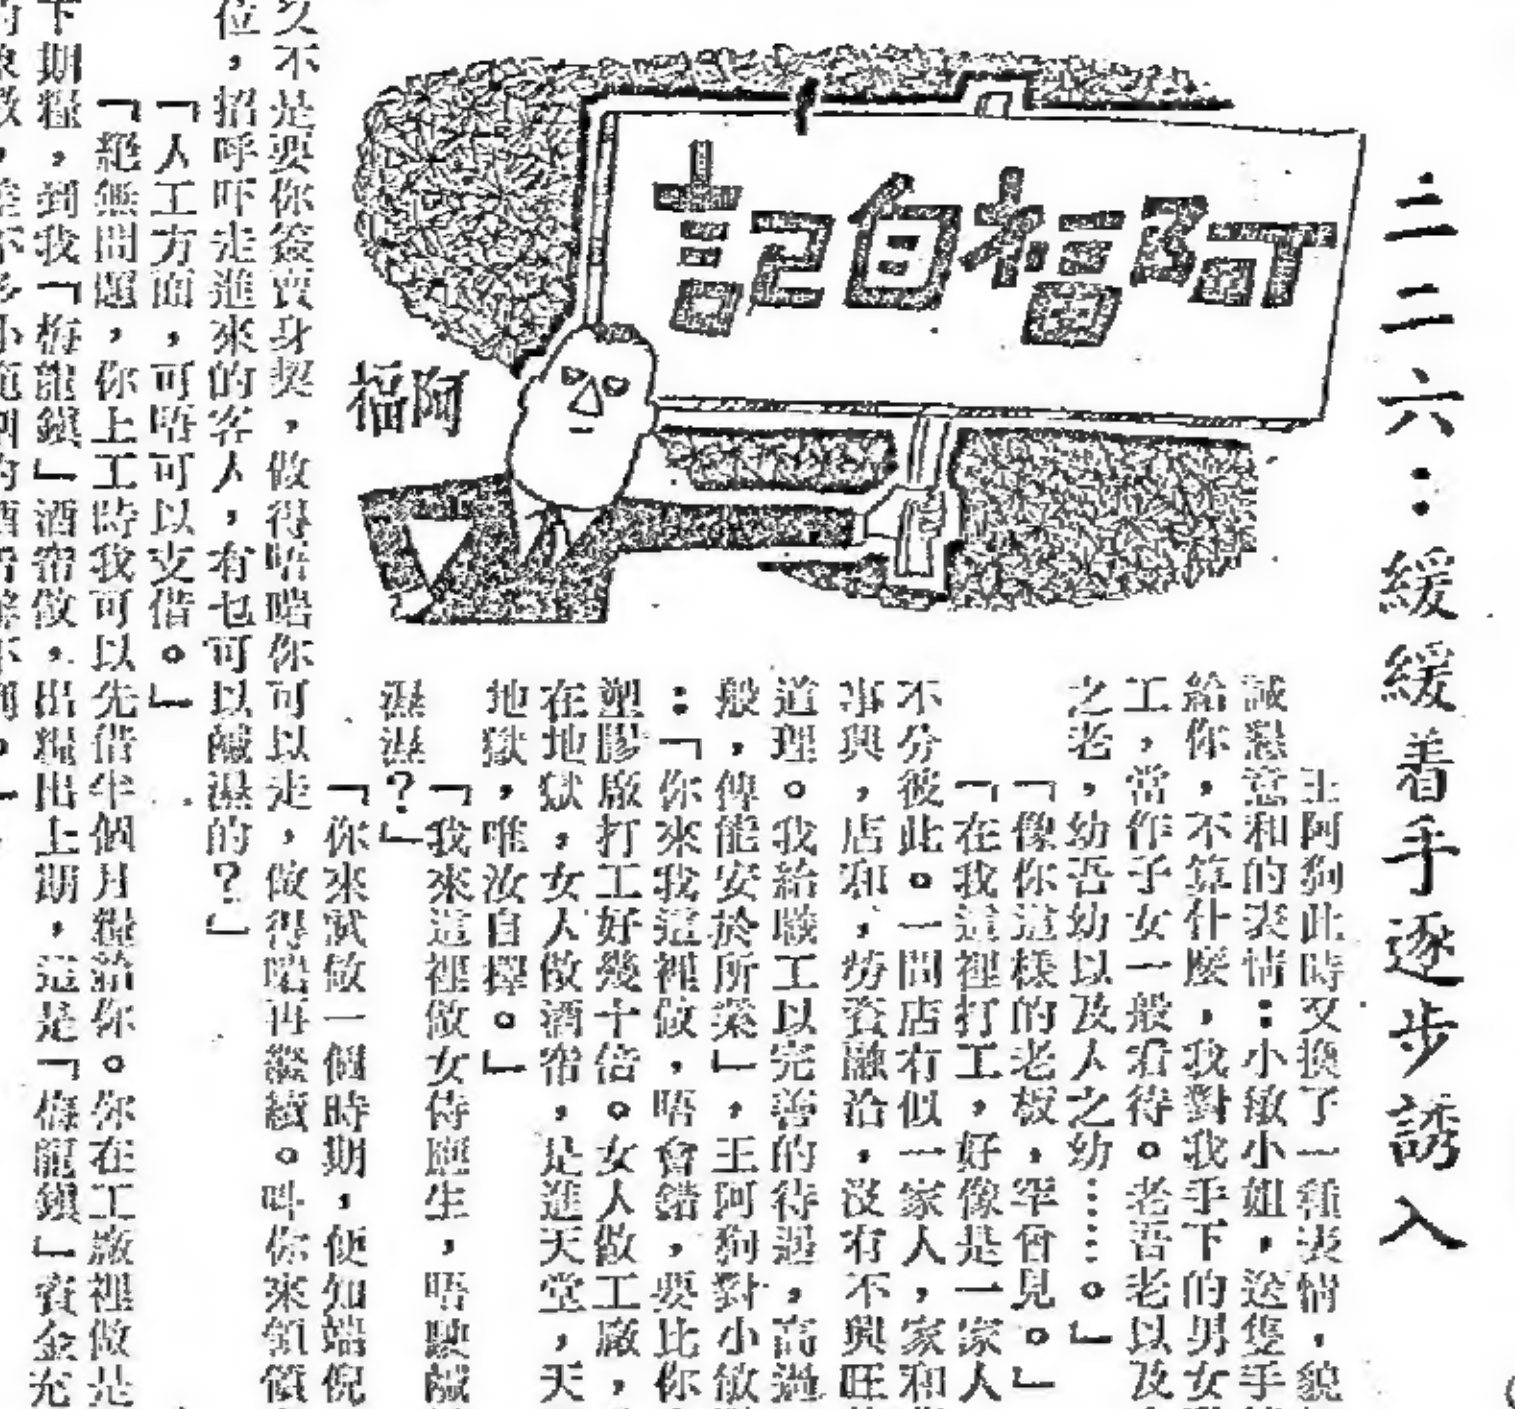 二二六：緩緩着手逐步誘入
阿福自記
阿福
王阿狗此時又換了一種表情，貌
誠懇意和的表情：小敏小姐，送隻手
給你，不算什麼，我對我手下的男女
工，當作子女一般看待。老吾老以及
之老，幼吾幼以及人之幼……。」
「像你這樣的老板，罕曾見。」
「在我這裡打工，好像是一家人
不分彼此。一間店有似一家人，家和
事興，店和，勞資融洽，沒有不興旺
道理。我給職工以完善的待遇，高過
般，俾能安於所業」，王阿狗對小敏
：「你來我這裡做，唔會錯，要比你
塑膠廠打工好幾十倍。女人做工廠，
在地獄，女人做酒帘，是進天堂，天
地獄，唯汝自擇。」
「我來這裡做女侍應生，唔駛鹹
濕濕？」
「你來試做一個時期，便知端倪
又不是要你簽賣身契，做得唔啱你可以走，做得啱再繼續。叫你來領領
位，招呼吓走進來的客人，有乜可以鹹濕的？」
「人工方面，可唔可以支借。」
「絕無問題，你上工時我可以先借半個月糧給你。你在工廠裡做是
下期糧，到我「梅龍鎮」酒帘做，出糧出上期，這是「梅龍鎮」資金充